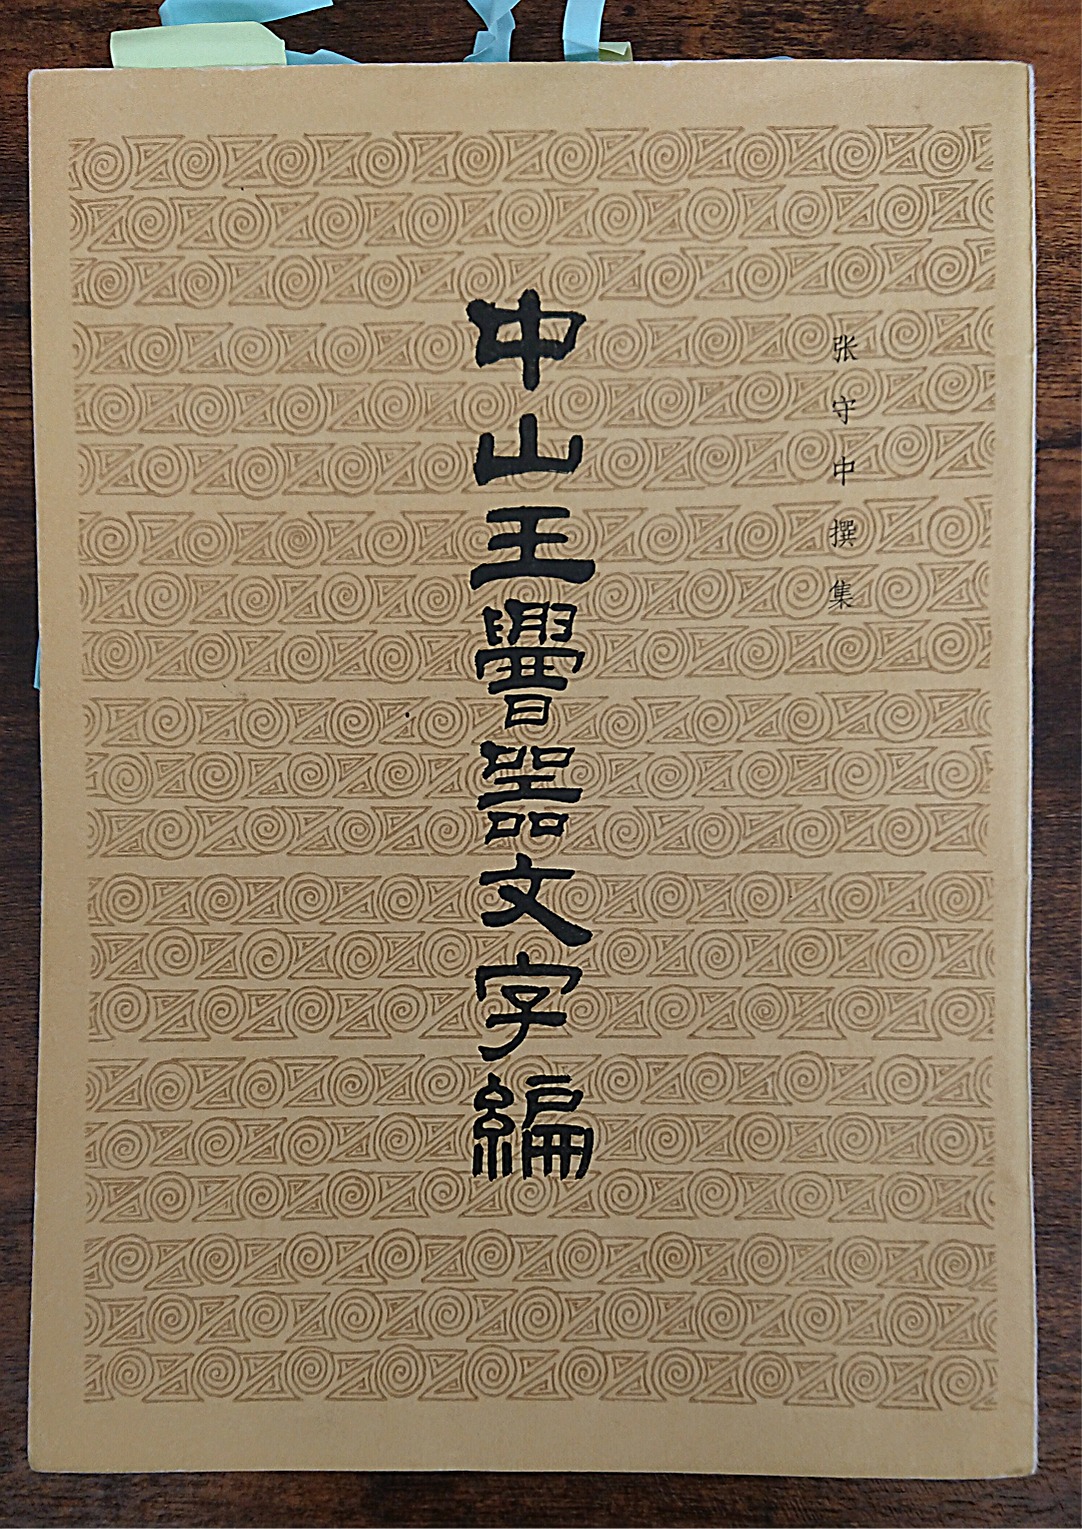 张守中撰集
中山王𰯼器文字編